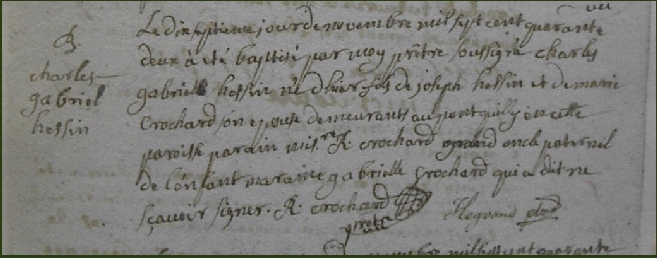 B.
charles
gabriel
hessin
Le dixseptieme jour de novembre mil sept cent quarante
deux à eté baptisé par moy prêtre soussigné charles
gabriell hessin né d'hier fils de joseph hessin et de marie
Crochard son epouse demeurants au pont guilly en cette
paroisse parain mis. R. crochard grand oncle paternel
de l'enfant maraine gabrielle Crochard qui a dit ne
sçavoir signer. R. crochard
pretre
novembre mil sept cent quarante